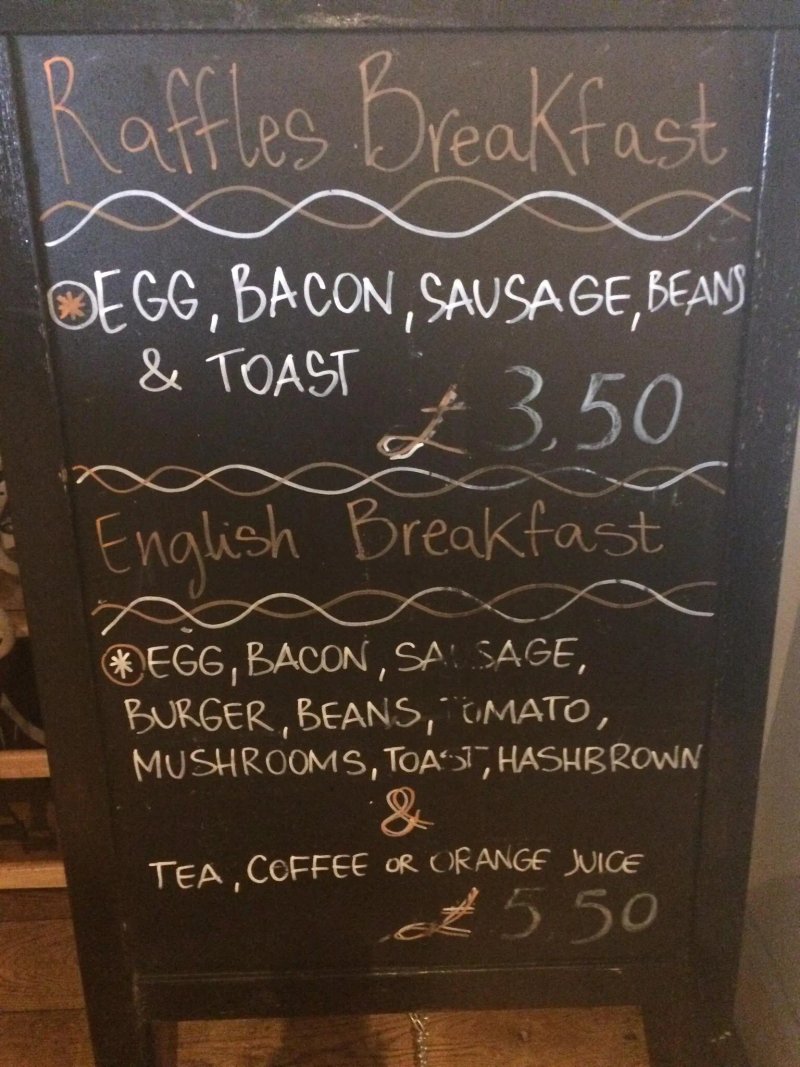 Raffles Breakfast
EGG, BACON, SAUSAGE, BEANS
& TOAST
£ 3.50
English Breakfast
EGG, BACON, SAUSAGE,
BURGER, BEANS, TOMATO,
MUSHROOMS, TOAST, HASHBROWN
&
TEA, COFFEE OR ORANGE JUICE
£ 5.50